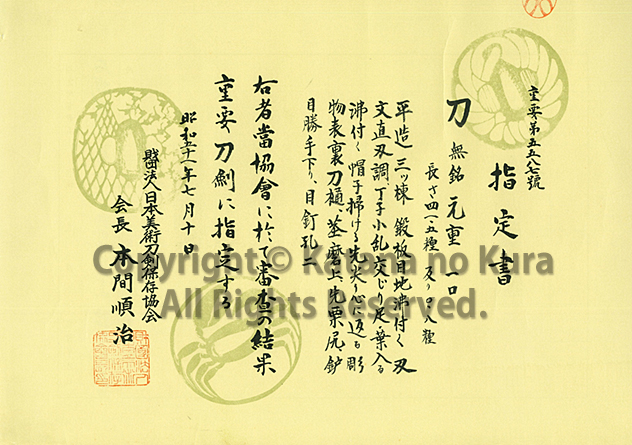 重要第五五八七號
指定書
刀 無銘 元重 一口
長さ四一・五糎 反り〇・八糎
平造 三ツ棟 鍛板目地沸付く 刃
文直刃調丁子小乱交じり足・葉入る
沸付く 帽子掃けく先尖り心に返る 彫
物表裏刀樋 茎磨上、先栗尻、鑢
目勝手下り、目釘孔二
右者當協會に於て審査の結果
重要刀剣に指定する
昭和五十一年七月十日
財団法人日本美術刀剣保存協会
会長 本間順治
Copyright© Katana no Kura
All Rights Reserved.